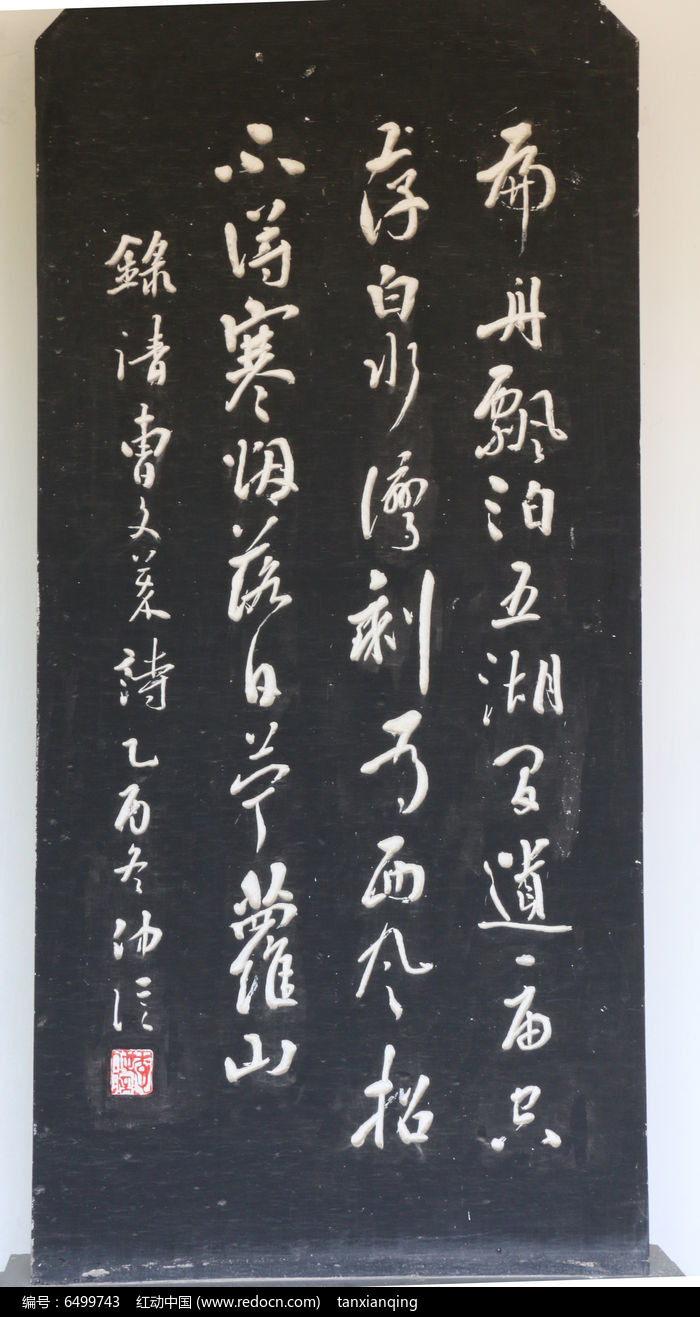 扁舟飄泊五湖间遺庙只
存白水灣剩有西风招
不得寒烟落日苧蘿山
錄清曹文詩乙酉冬
编号：6499743 红动中国 (www.redocn.com) tanxianqing